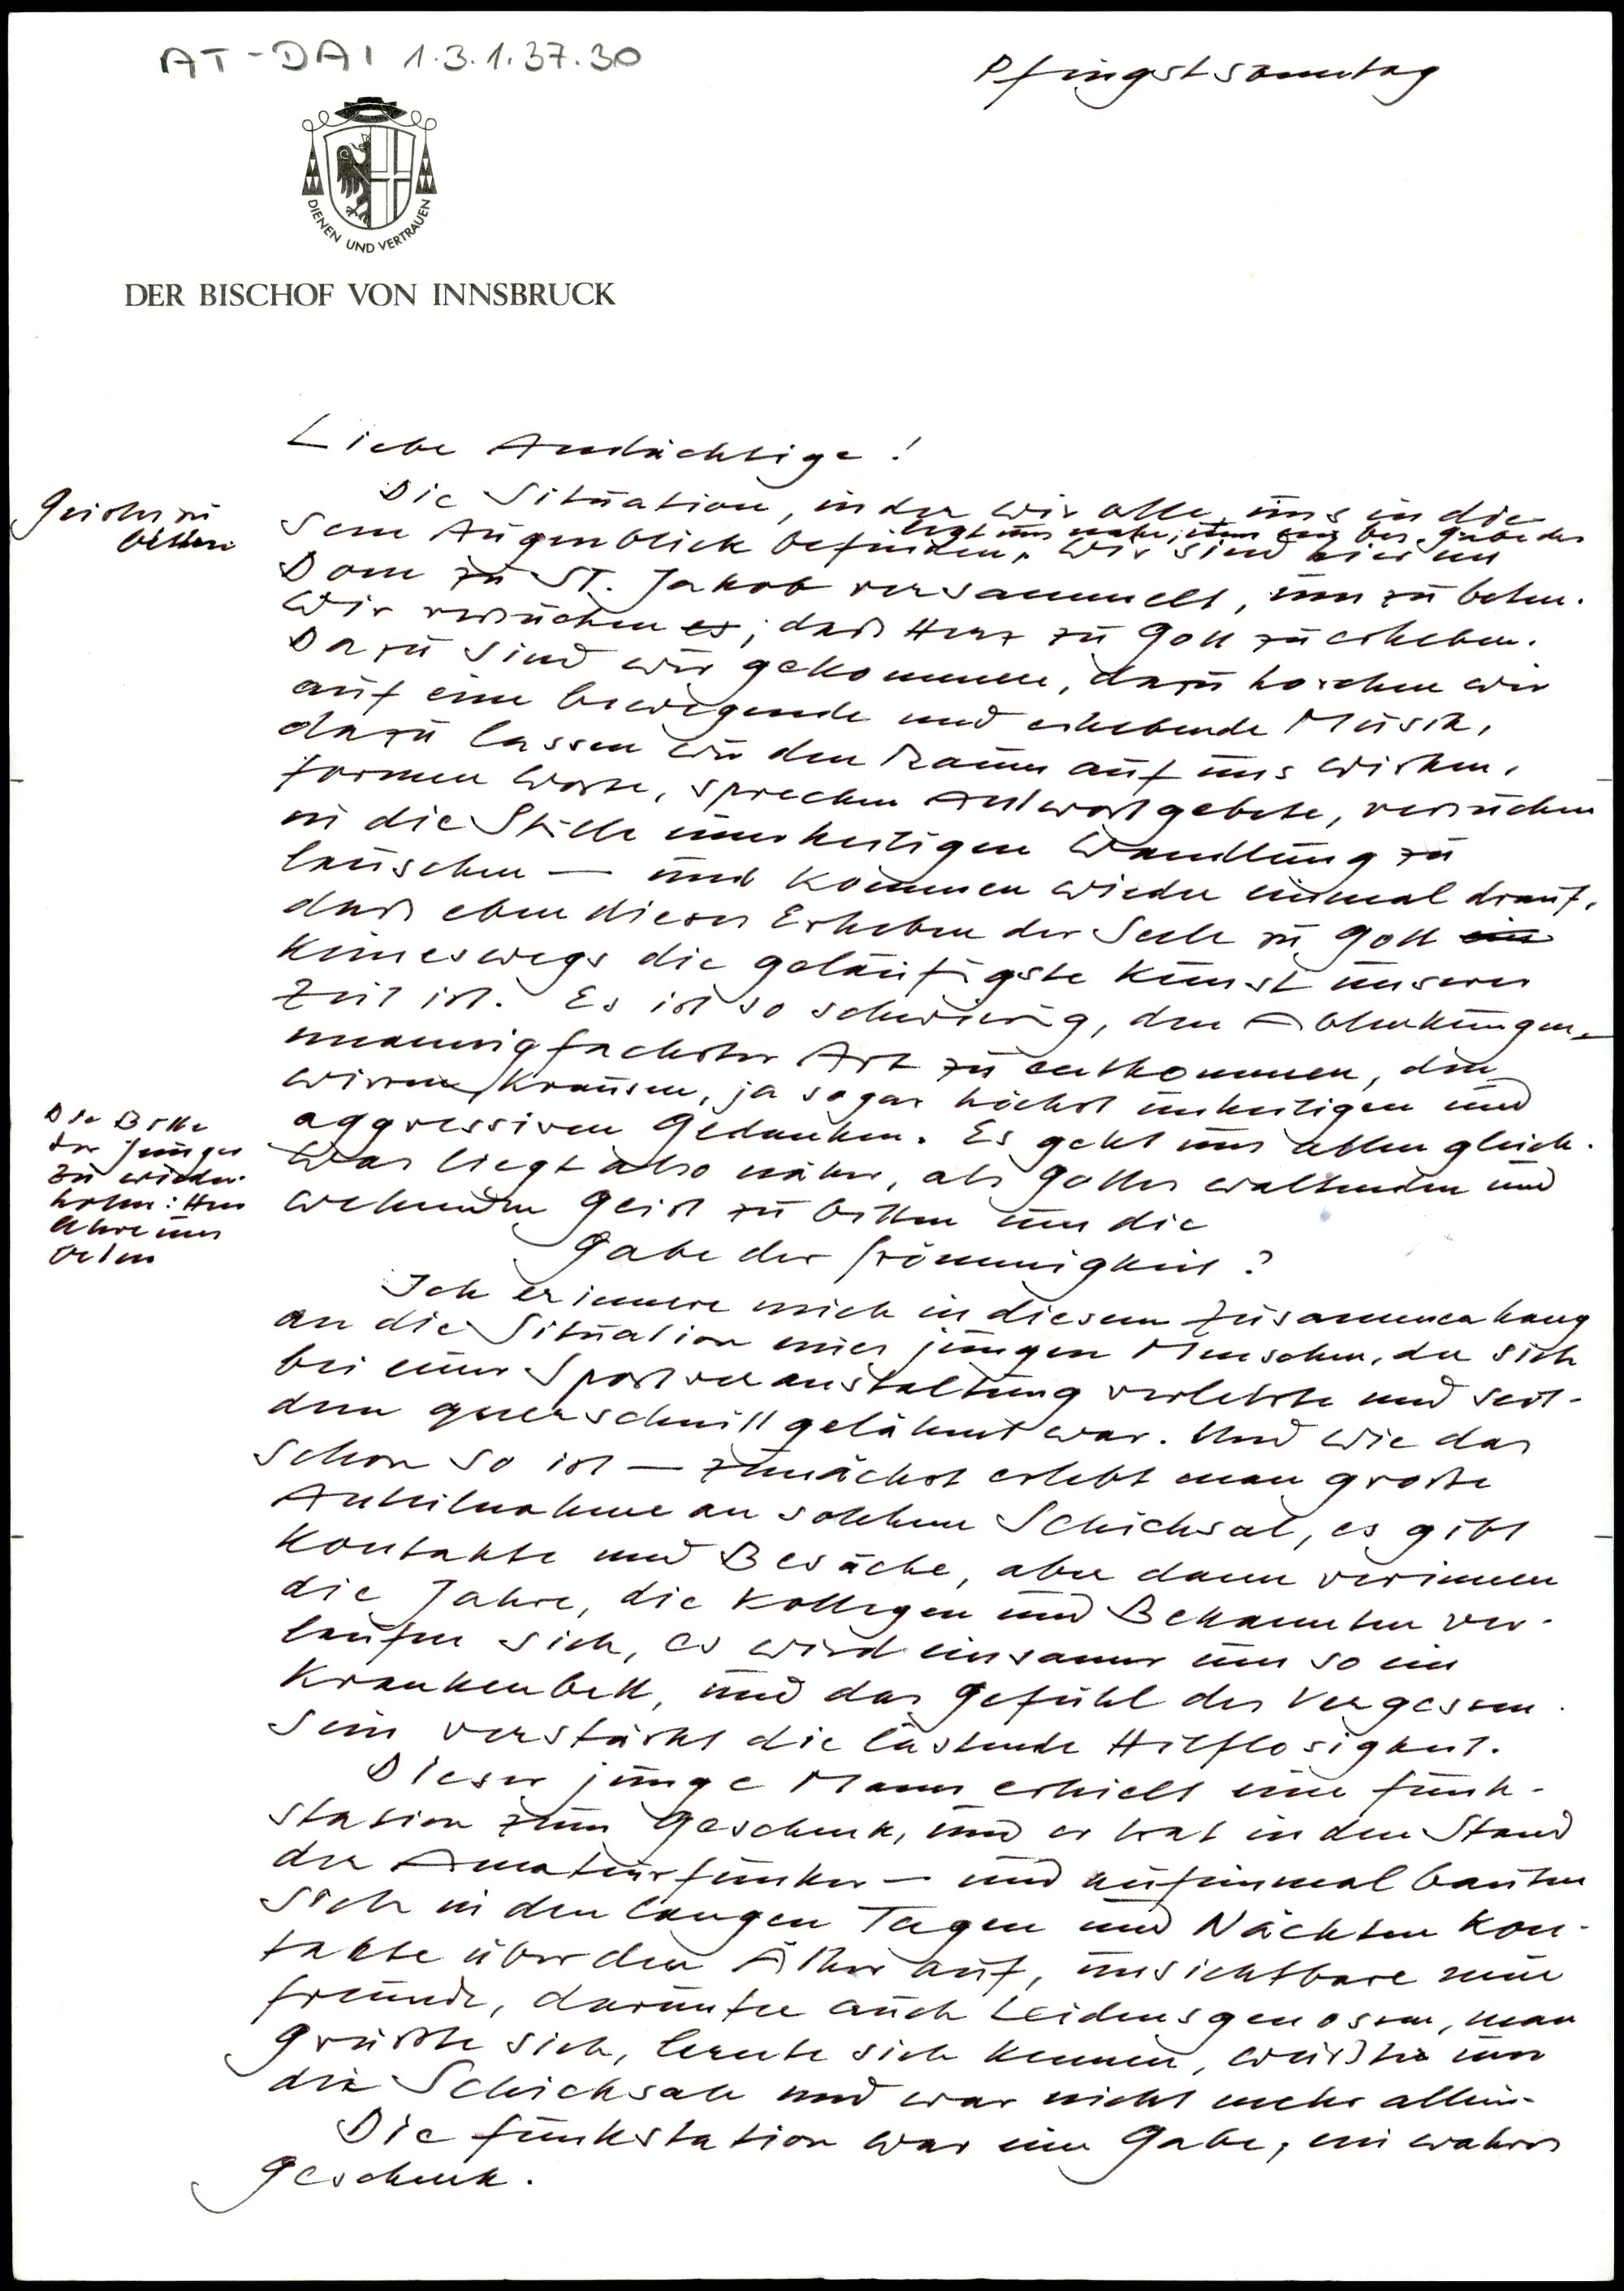 AT-DAI 1.3.1.37.30
Pfingstsonntag
DIENEN UND VERTRAUEN
DER BISCHOF VON INNSBRUCK
Liebe Andächtige!
Die Situation, in der wir alle uns in die-
sem Augenblick befinden, legt uns nahe, um die Gabe des
Geistes zu
bitten
Wir sind hier im
Dom zu St. Jakob versammelt, um zu beten.
Wir versuchen es, das Herz zu Gott zu erheben.
Dazu sind wir gekommen, dazu horchen wir
auf eine bewegende und erhebende Musik,
dazu lassen wir den Raum auf uns wirken,
formen Worte, sprechen Antwortgebete, versuchen
in die Stille einer heiligen Wandlung zu
lauschen — und kommen wieder einmal drauf,
daß eben dieses Erheben der Seele zu Gott ein
keineswegs die geläufigste Kunst unserer
Zeit ist. Es ist so schwierig, den Ablenkungen
mannigfachster Art zu entkommen, den
wirren krausen, ja sogar höchst unheiligen und
aggressiven Gedanken. Es geht uns allen gleich.
Was liegt also näher, als Gottes waltenden und
wehenden Geist zu bitten um die
Gabe der Frömmigkeit?
Die Bitte
der Jünger
zu wieder-
holen: Herr
lehre uns
beten
Ich erinnere mich in diesem Zusammenhang
an die Situation eines jungen Menschen, der sich
bei einer Sportveranstaltung verletzte und seit-
dem querschnittgelähmt war. Und wie das
schon so ist — zunächst erlebt man große
Anteilnahme an solchem Schicksal, es gibt
Kontakte und Besuche, aber dann verrinnen
die Jahre, die Kollegen und Bekannten ver-
laufen sich, es wird einsamer um so ein
Krankenbett, und das Gefühl des Vergessen-
seins verstärkt die lastende Hilflosigkeit.
Dieser junge Mann erhielt eine Funk-
station zum Geschenk, und er trat in den Stand
der Amateurfunker — und auf einmal bauten
sich in den langen Tagen und Nächten Kon-
takte über den Äther auf, unsichtbare neue
Freunde, darunter auch Leidensgenossen, man
grüßte sich, lernte sich kennen, wußte um
die Schicksale und war nicht mehr allein.
Die Funkstation war eine Gabe, ein wahres
Geschenk.